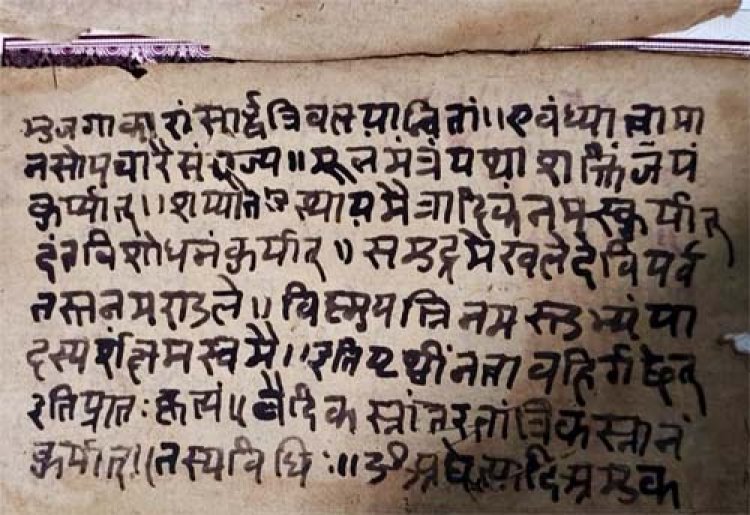 भुजगाकारां सार्द्धत्रिवलयान्वितां॥ एवंध्यात्वामा
नसोपचारैसंपूज्य॥ मूलमंत्रंयथाशक्तिजपं
कुर्य्यात्॥ शय्योत्थायमैत्रादिकंनमस्कुर्यात्
दंतविशोधनंकुर्यात्॥ समुद्रमेखलेदेविपर्व
तस्तनमराडले॥ विष्णुपत्निनमस्तुभ्यंपा
दस्पर्शंक्षमस्वमे॥ इतिपृथ्वींनत्वाबहिर्गछेत्
इतिप्रातःकृत्यं॥ वैदिकस्नांतरतांत्रिकंस्नानं
कुर्यात्॥ तस्यविधिः॥ ॐअद्येत्यादिअमुक